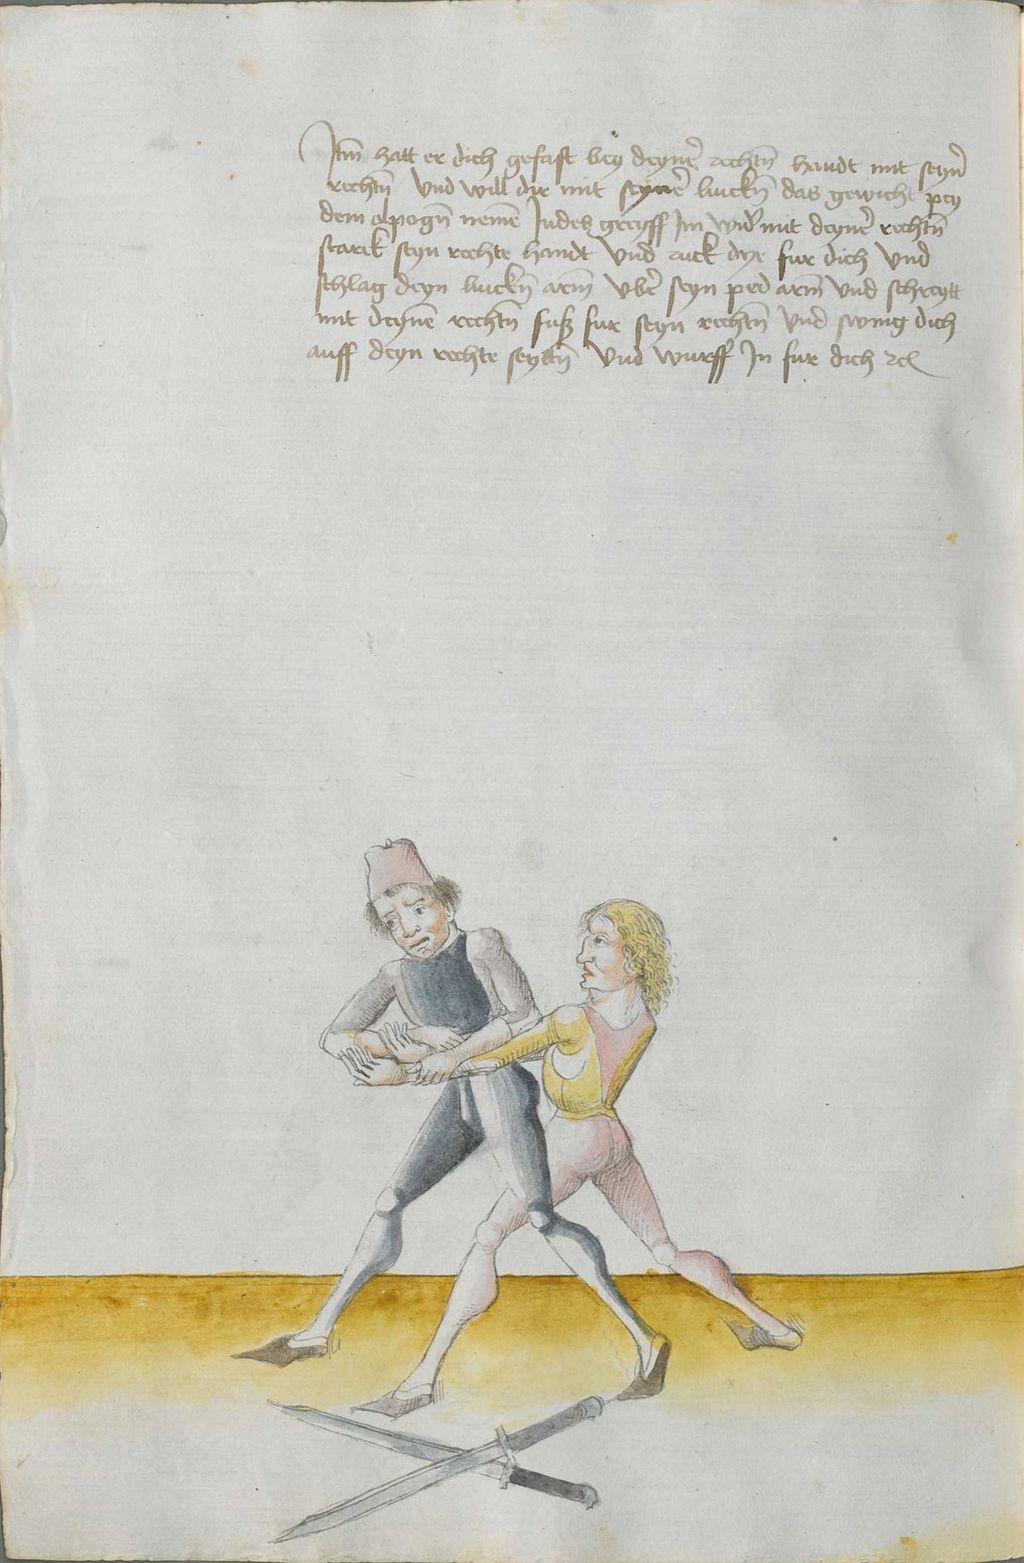 Itm̄ hatt er dich gefast bey deynẽ rechtñ handt mit seyñ
rechtñ Vnd will dir mit seynẽ linckñ das gewicht pey
dem elpogñ nemẽ Indes greyff Im wid̃ mit deynẽ rechtñ
starck seyn rechte handt Vnd ruck dye fur dich Vnd
schlag deyn linckñ arm̄ vbẽ seyn ped arm̄ Vnd schreytt
mit deynẽ rechtñ fuß fur seyn rechtñ Vnd swing dich
auff deyn rechte seyttñ Vnd wurff In fur dich ꝛc